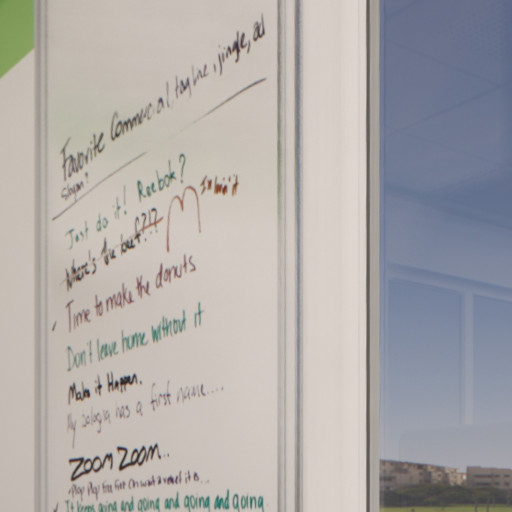 Favorite Commercial, tagline, jingle, ad
Slogan?
Just do it! Reebok?
Where's the beef?!? I'm lovin it
Time to make the donuts
Don't leave home without it
Make it Happen.
My bologna has a first name....
ZOOM ZOOM..
Plop Plop Fizz Fizz Oh what a relief it is...
It keeps going and going and going and going